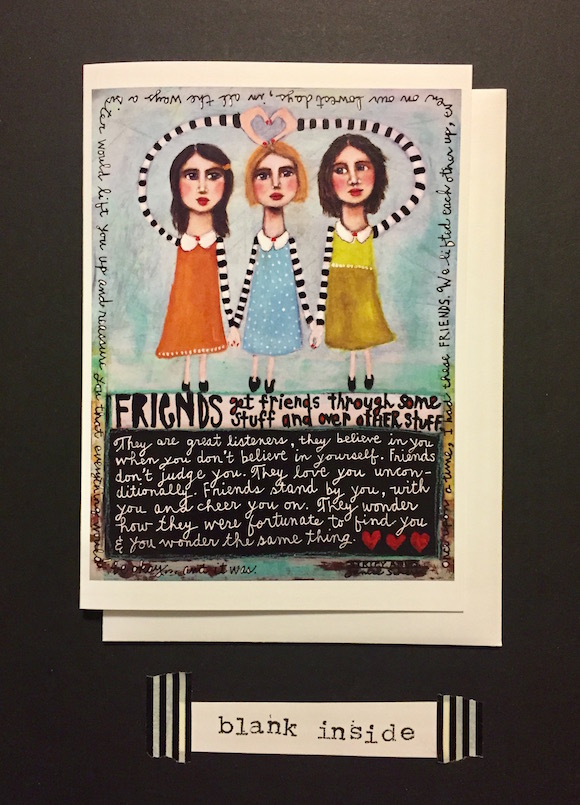 FRIENDS get friends through some
stuff and over otHER stuff
They are great listeners, they believe in you
when you don't believe in yourself. Friends
don't judge you. They love you uncon-
ditionally. Friends stand by you, with
you and cheer you on. They wonder
how they were fortunate to find you
& you wonder the same thing.
once upon a time, I had these FRIENDS. We lifted each other up, ev
en on our lowest days, in all the ways a sis
ter would lift you up and reassure you that everything would
be okay... and it was.
blank inside